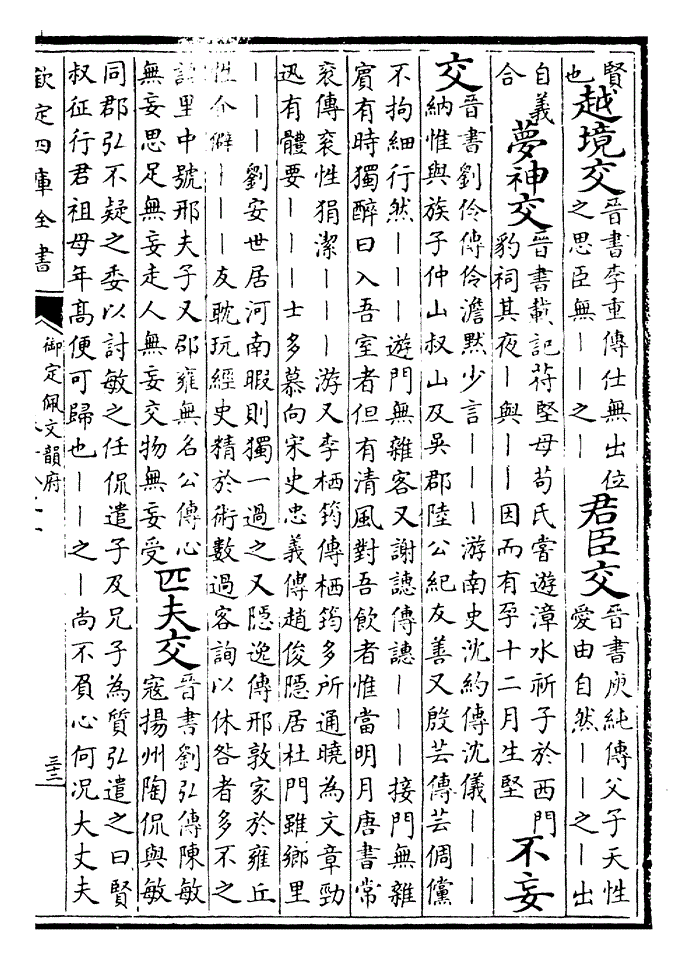 賢
也越境交晉書李重傳仕無出位
之思臣無｜｜之｜君臣交晉書庾純傳父子天性
愛由自然｜｜之｜出
自義
合夢神交晉書載記苻堅母苟氏嘗遊漳水祈子於西門
豹祠其夜｜與｜｜因而有孕十二月生堅不妄
交晉書劉伶傳伶澹默少言｜｜｜游南史沈約傳沈儀｜｜｜
納惟與族子仲山叔山及吳郡陸公紀友善又殷芸傳芸倜儻
不拘細行然｜｜｜遊門無雜客又謝譓傳譓｜｜｜接門無雜
賓有時獨醉曰入吾室者但有清風對吾飲者惟當明月唐書常
袞傳袞性狷潔｜｜｜游又李栖筠傳栖筠多所通曉為文章勁
迅有體要｜｜｜士多慕向宋史忠義傳趙俊隱居杜門雖鄉里
｜｜｜劉安世居河南暇則獨一過之又隱逸傳邢敦家於雍丘
性介僻｜｜｜友耽玩經史精於術數過客詢以休咎者多不之
里中號邢夫子又邵雍無名公傳心
無妄思足無妄走人無妄交物無妄受匹夫交晉書劉弘傳陳敏
寇揚州陶侃與敏
同郡弘不疑之委以討敏之任侃遣子及兄子為質弘遣之曰賢
叔征行君祖母年高便可歸也｜｜之｜尚不負心何況大丈夫
欽定四庫全書
御定佩文韻府
三十二